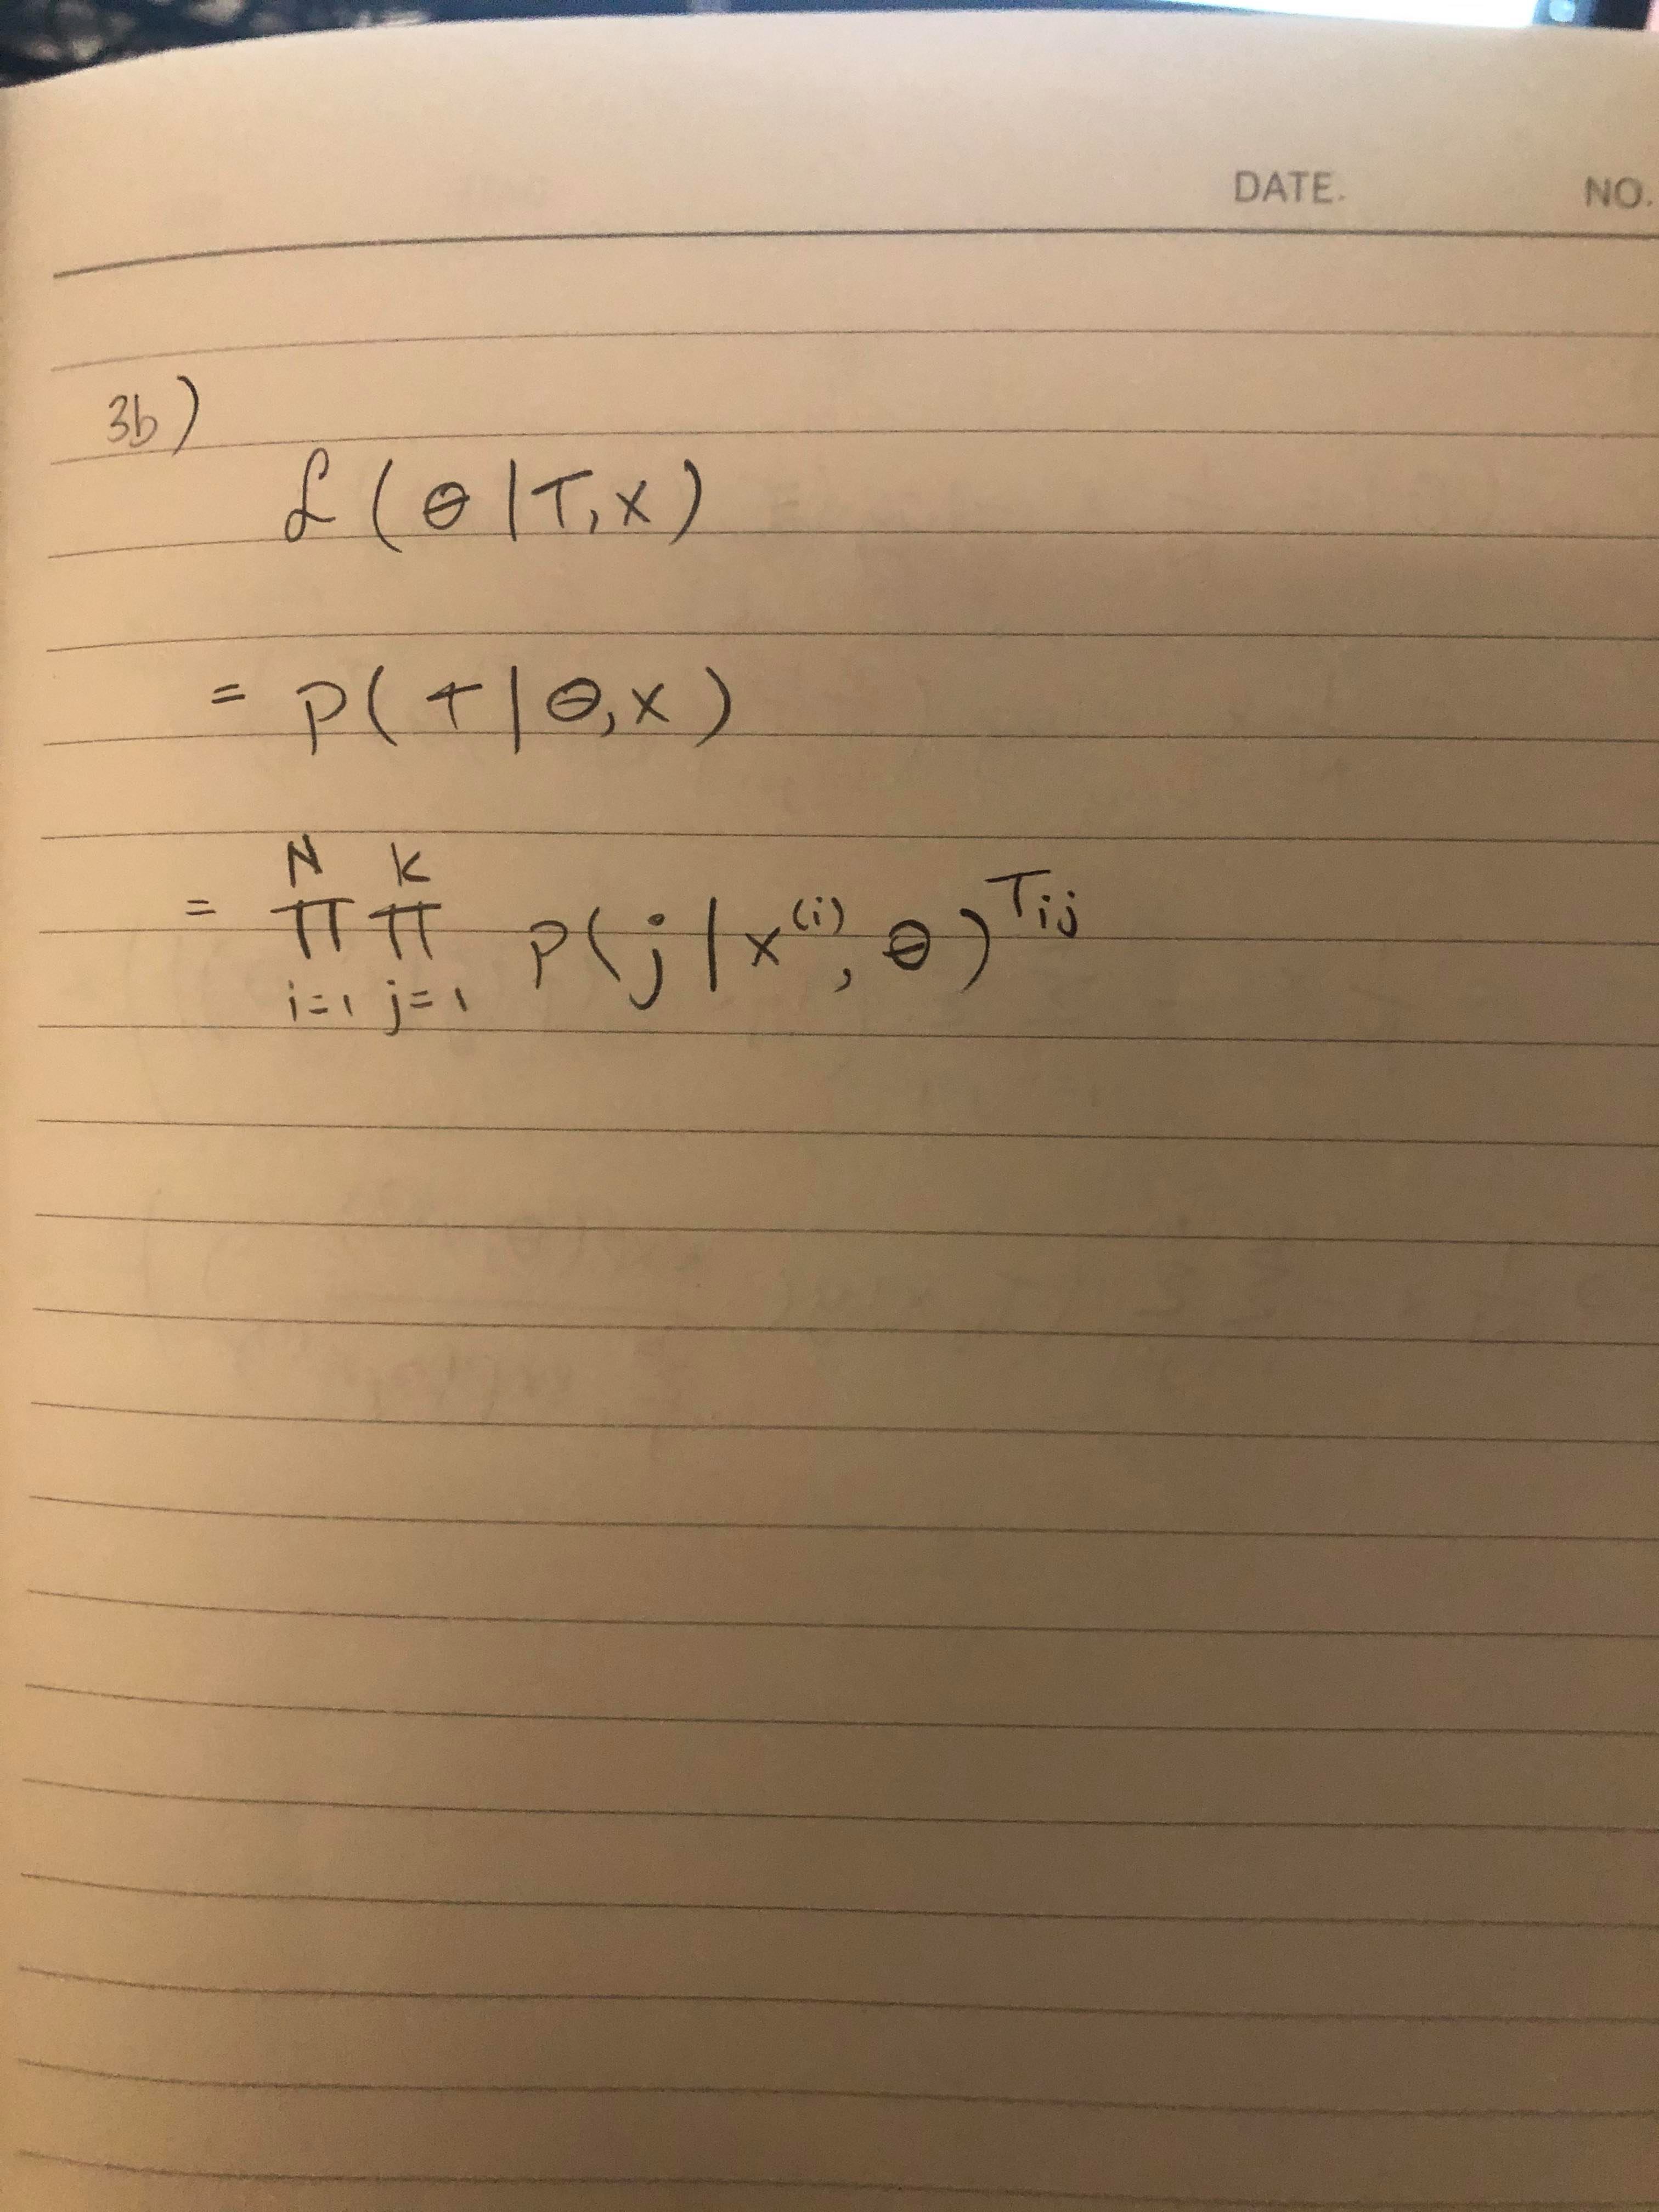 DATE. NO.
3b)
ℒ(θ|T,x)
= p(T|θ,x)
= ∏_{i=1}^{N} ∏_{j=1}^{K} p(j|x^{(i)},θ)^{T_{ij}}